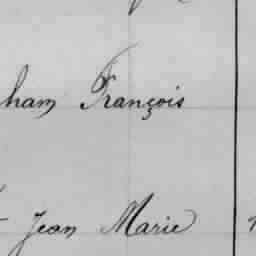 ham François
Jean Marie